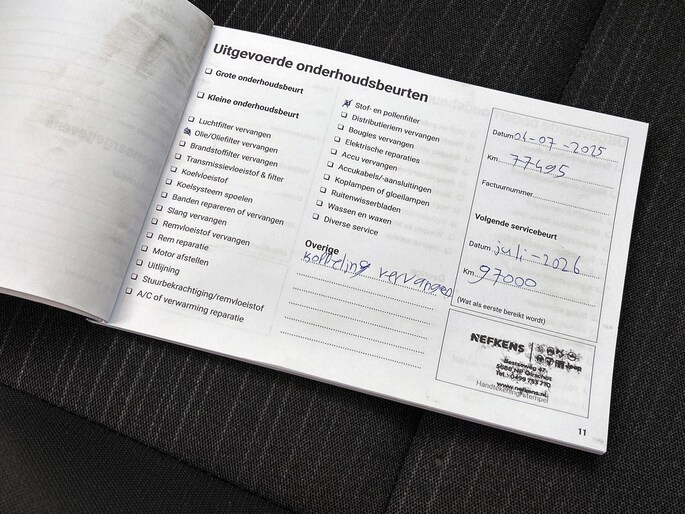 Uitgevoerde onderhoudsbeurten
Grote onderhoudsbeurt
Kleine onderhoudsbeurt
Luchtfilter vervangen
Olie/Oliefilter vervangen
Brandstoffilter vervangen
Transmissievloeistof & filter
Koelvloeistof
Koelsysteem spoelen
Banden repareren of vervangen
Slang vervangen
Remvloeistof vervangen
Rem reparatie
Motor afstellen
Uitlijning
Stuurbekrachtiging/remvloeistof
A/C of verwarming reparatie
Stof- en pollenfilter
Distributieriem vervangen
Bougies vervangen
Elektrische reparaties
Accu vervangen
Accukabels/-aansluitingen
Koplampen of gloeilampen
Ruitenwisserbladen
Wassen en waxen
Diverse service
Overige
koppeling vervangen
Datum 01-07-2025
Km 77495
Factuurnummer
Volgende servicebeurt
Datum juli-2026
Km 97000
(Wat als eerste bereikt wordt)
NEFKENS
Jeep
Tel. 0499
www.nefkens.nl
Handtekening/stempel
11